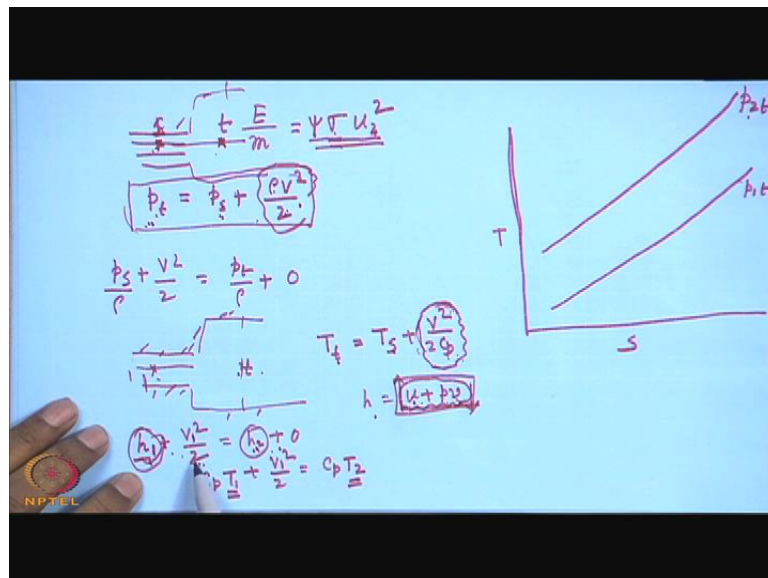 s t E/m = ψσ u₂²
p_t = p_s + ρv²/2
p_s/ρ + v²/2 = p_t/ρ + 0
t
T_t = T_s + v²/2c_p
h = u + pv
h₁ + v₁²/2 = h₂ + 0
c_p T₁ + v₁²/2 = c_p T₂
p₂t
p₁t
T
S
NPTEL